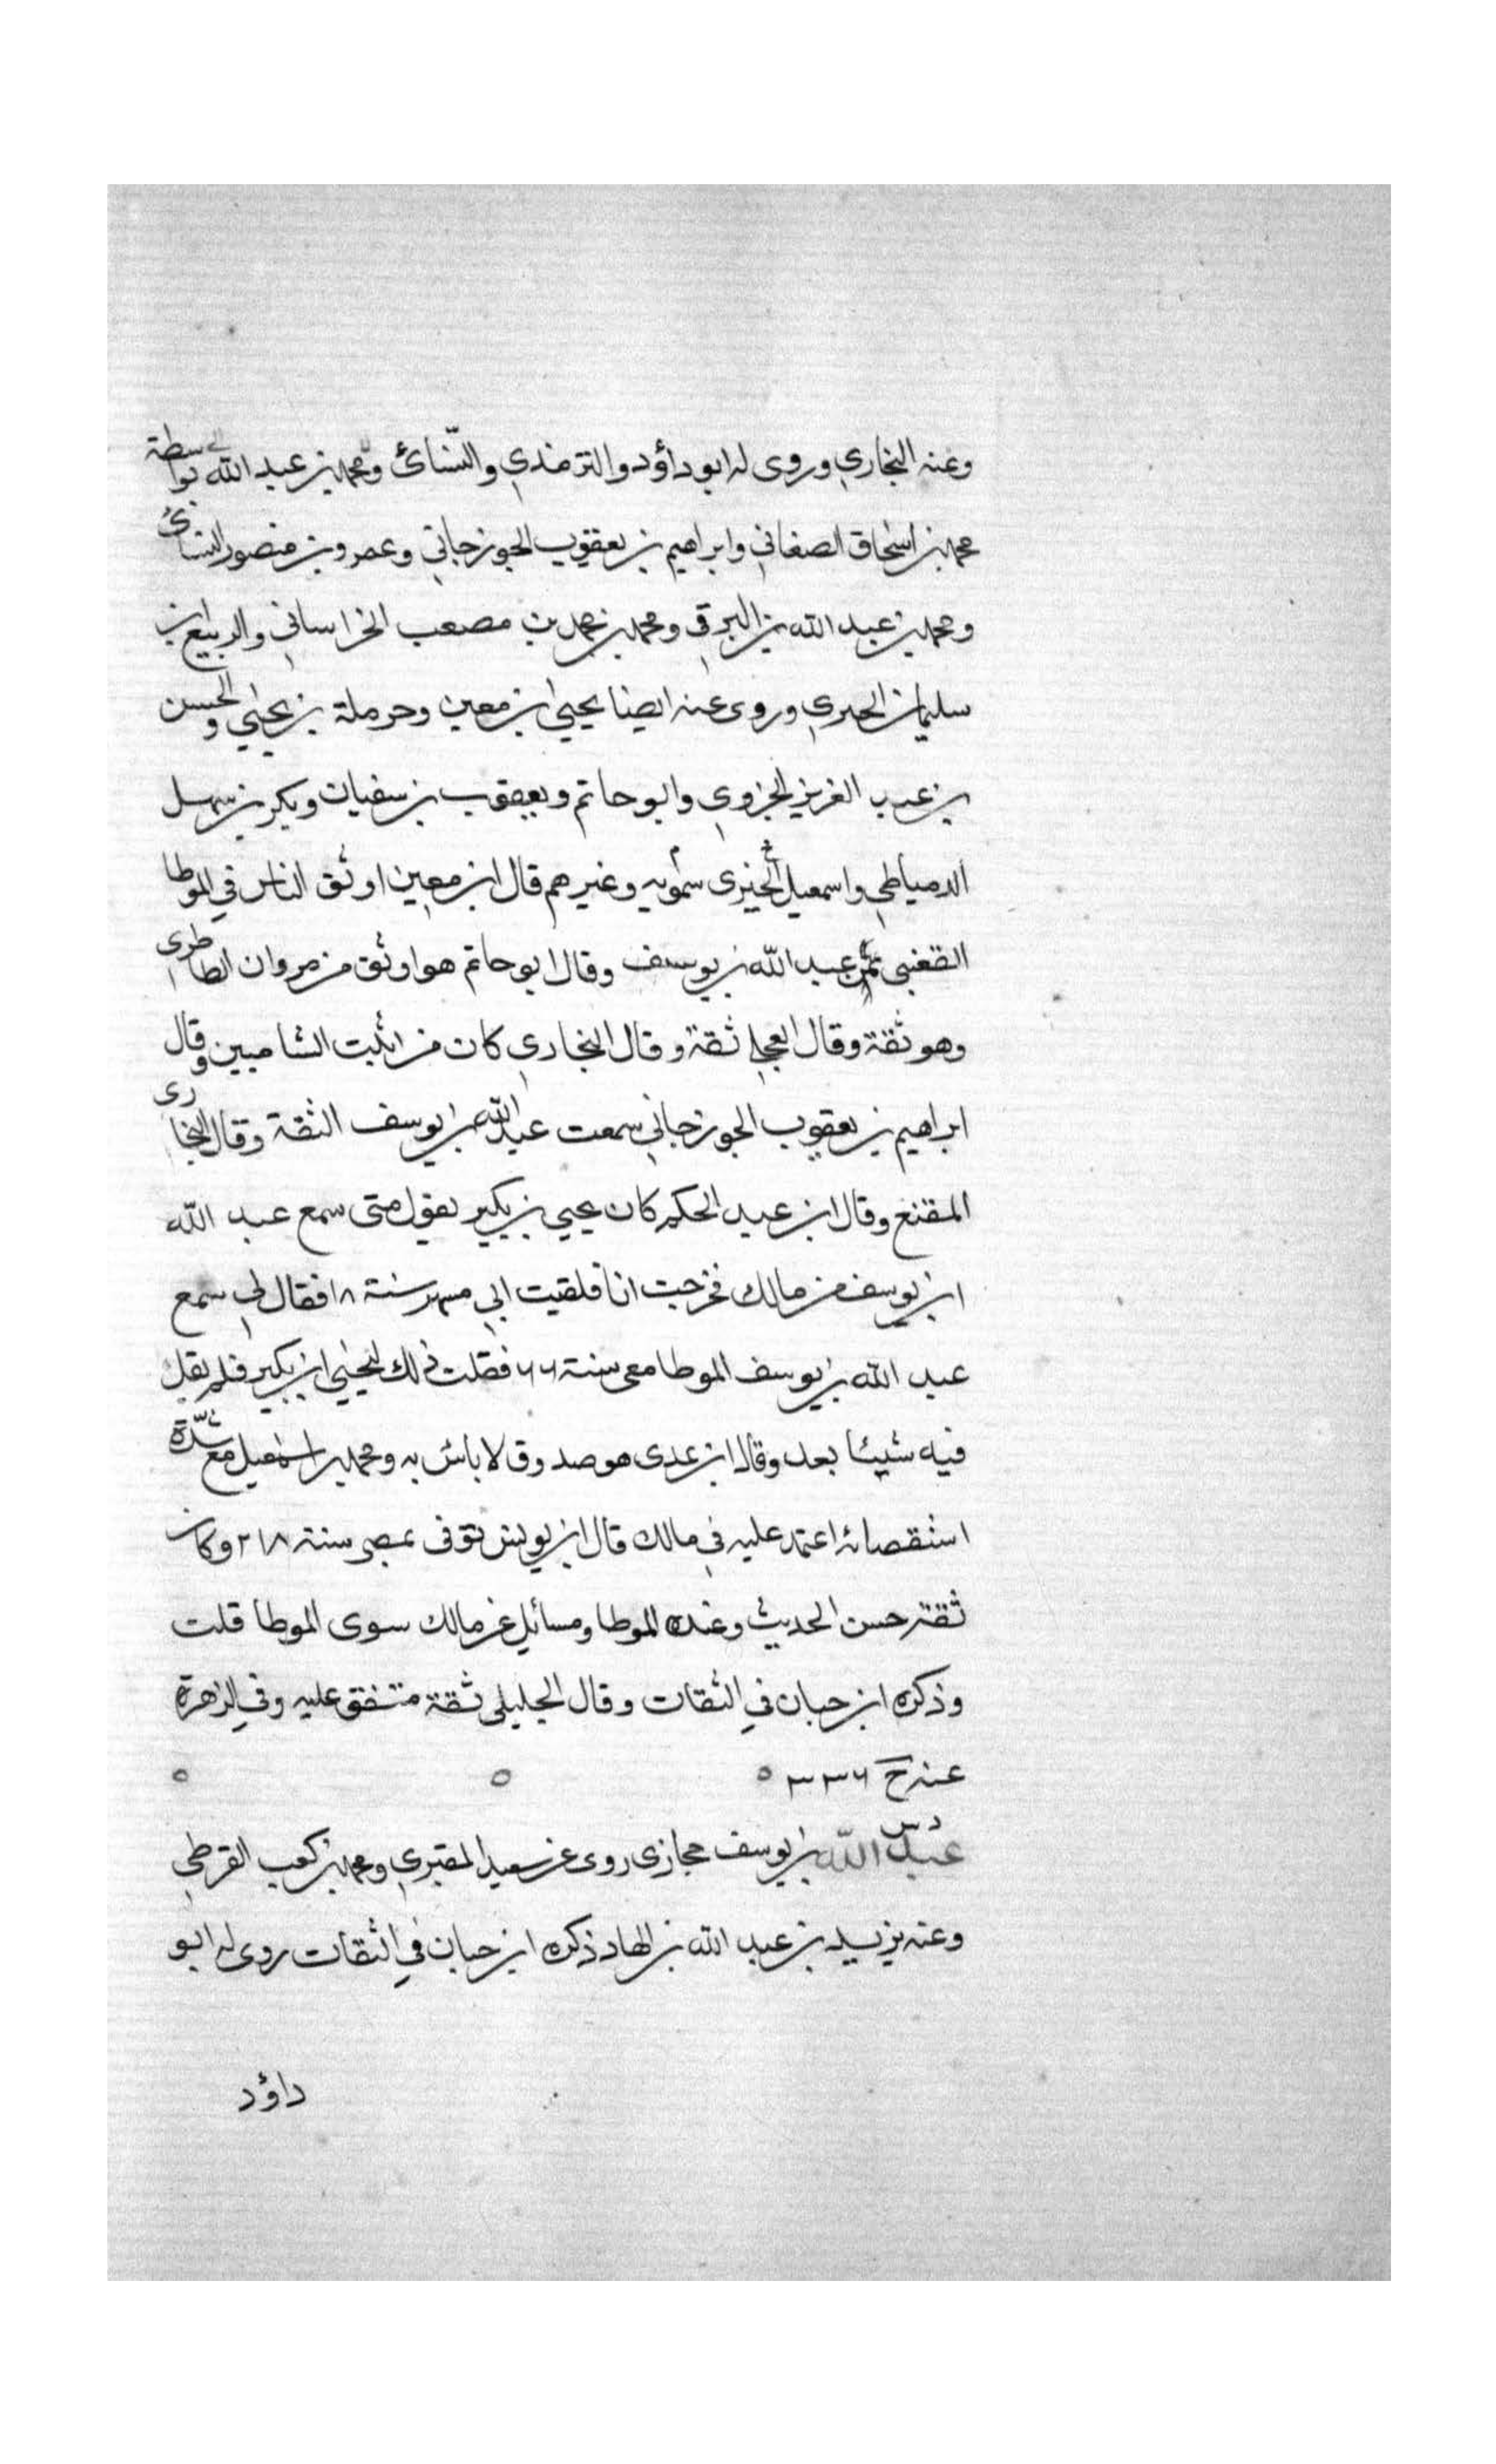 وعنه البخاري وروى له ابو داؤد والترمذي والنسائ ومحمد بن عبد الله بواسطة
محمد بن اسحاق الصغاني وابراهيم بن يعقوب الجوزجاني وعمرو بن منصور النسائ
ومحمد بن عبد الله بن البرقي ومحمد بن محمد بن مصعب الخراساني والربيع ابن
سليمان الجيزي وروى عنه ايضا يحيى ابن معين وحرملة بن يحيى والحسن
بن عبد العزيز الجزوي وابو حاتم ويعقوب بن سفيان وبكر بن سهل
الدمياطي واسمعيل سمويه وغيرهم قال ابن معين اوثق الناس في الموطا
القعنبي ثم عبد الله بن يوسف وقال ابو حاتم هو اوثق من مروان الطاطرى
وهو ثقة وقال العجلي ثقة وقال البخاري كان من اثبت الشاميين وقال
ابراهيم بن يعقوب الجوزجاني سمعت عبد الله بن يوسف الثقة وقال البخارى
المقنع وقال ابن عبد الحكم كان يحيى بن بكير يقول متى سمع عبد الله
ابن يوسف من مالك فخرجت انا فلقيت ابي مسهر سنة ١٨ فقال لي سمع
عبد الله بن يوسف الموطا معى سنة ٦٦ فقلت ذلك ليحيى ابن بكير فلم يقل
فيه شيئا بعد وقال ابن عدى هو صدوق لا باس به ومحمد بن اسمعيل مع شدة
استقصائه اعتمد عليه في مالك قال ابن يونس توفى بمصر سنة ٢١٨ وكان
ثقة حسن الحديث وعنده الموطا ومسائل عن مالك سوى الموطا قلت
وذكره ابن حبان في الثقات وقال الجليلي ثقة متفق عليه وفي الزهرة
عنه خ ٣٣٦
عبد الله بن يوسف حجازى روى عن سعيد المقبري ومحمد بن كعب القرظي
وعنه يزيد بن عبد الله بن الهاد ذكره ابن حبان في الثقات روى له ابو
داؤد